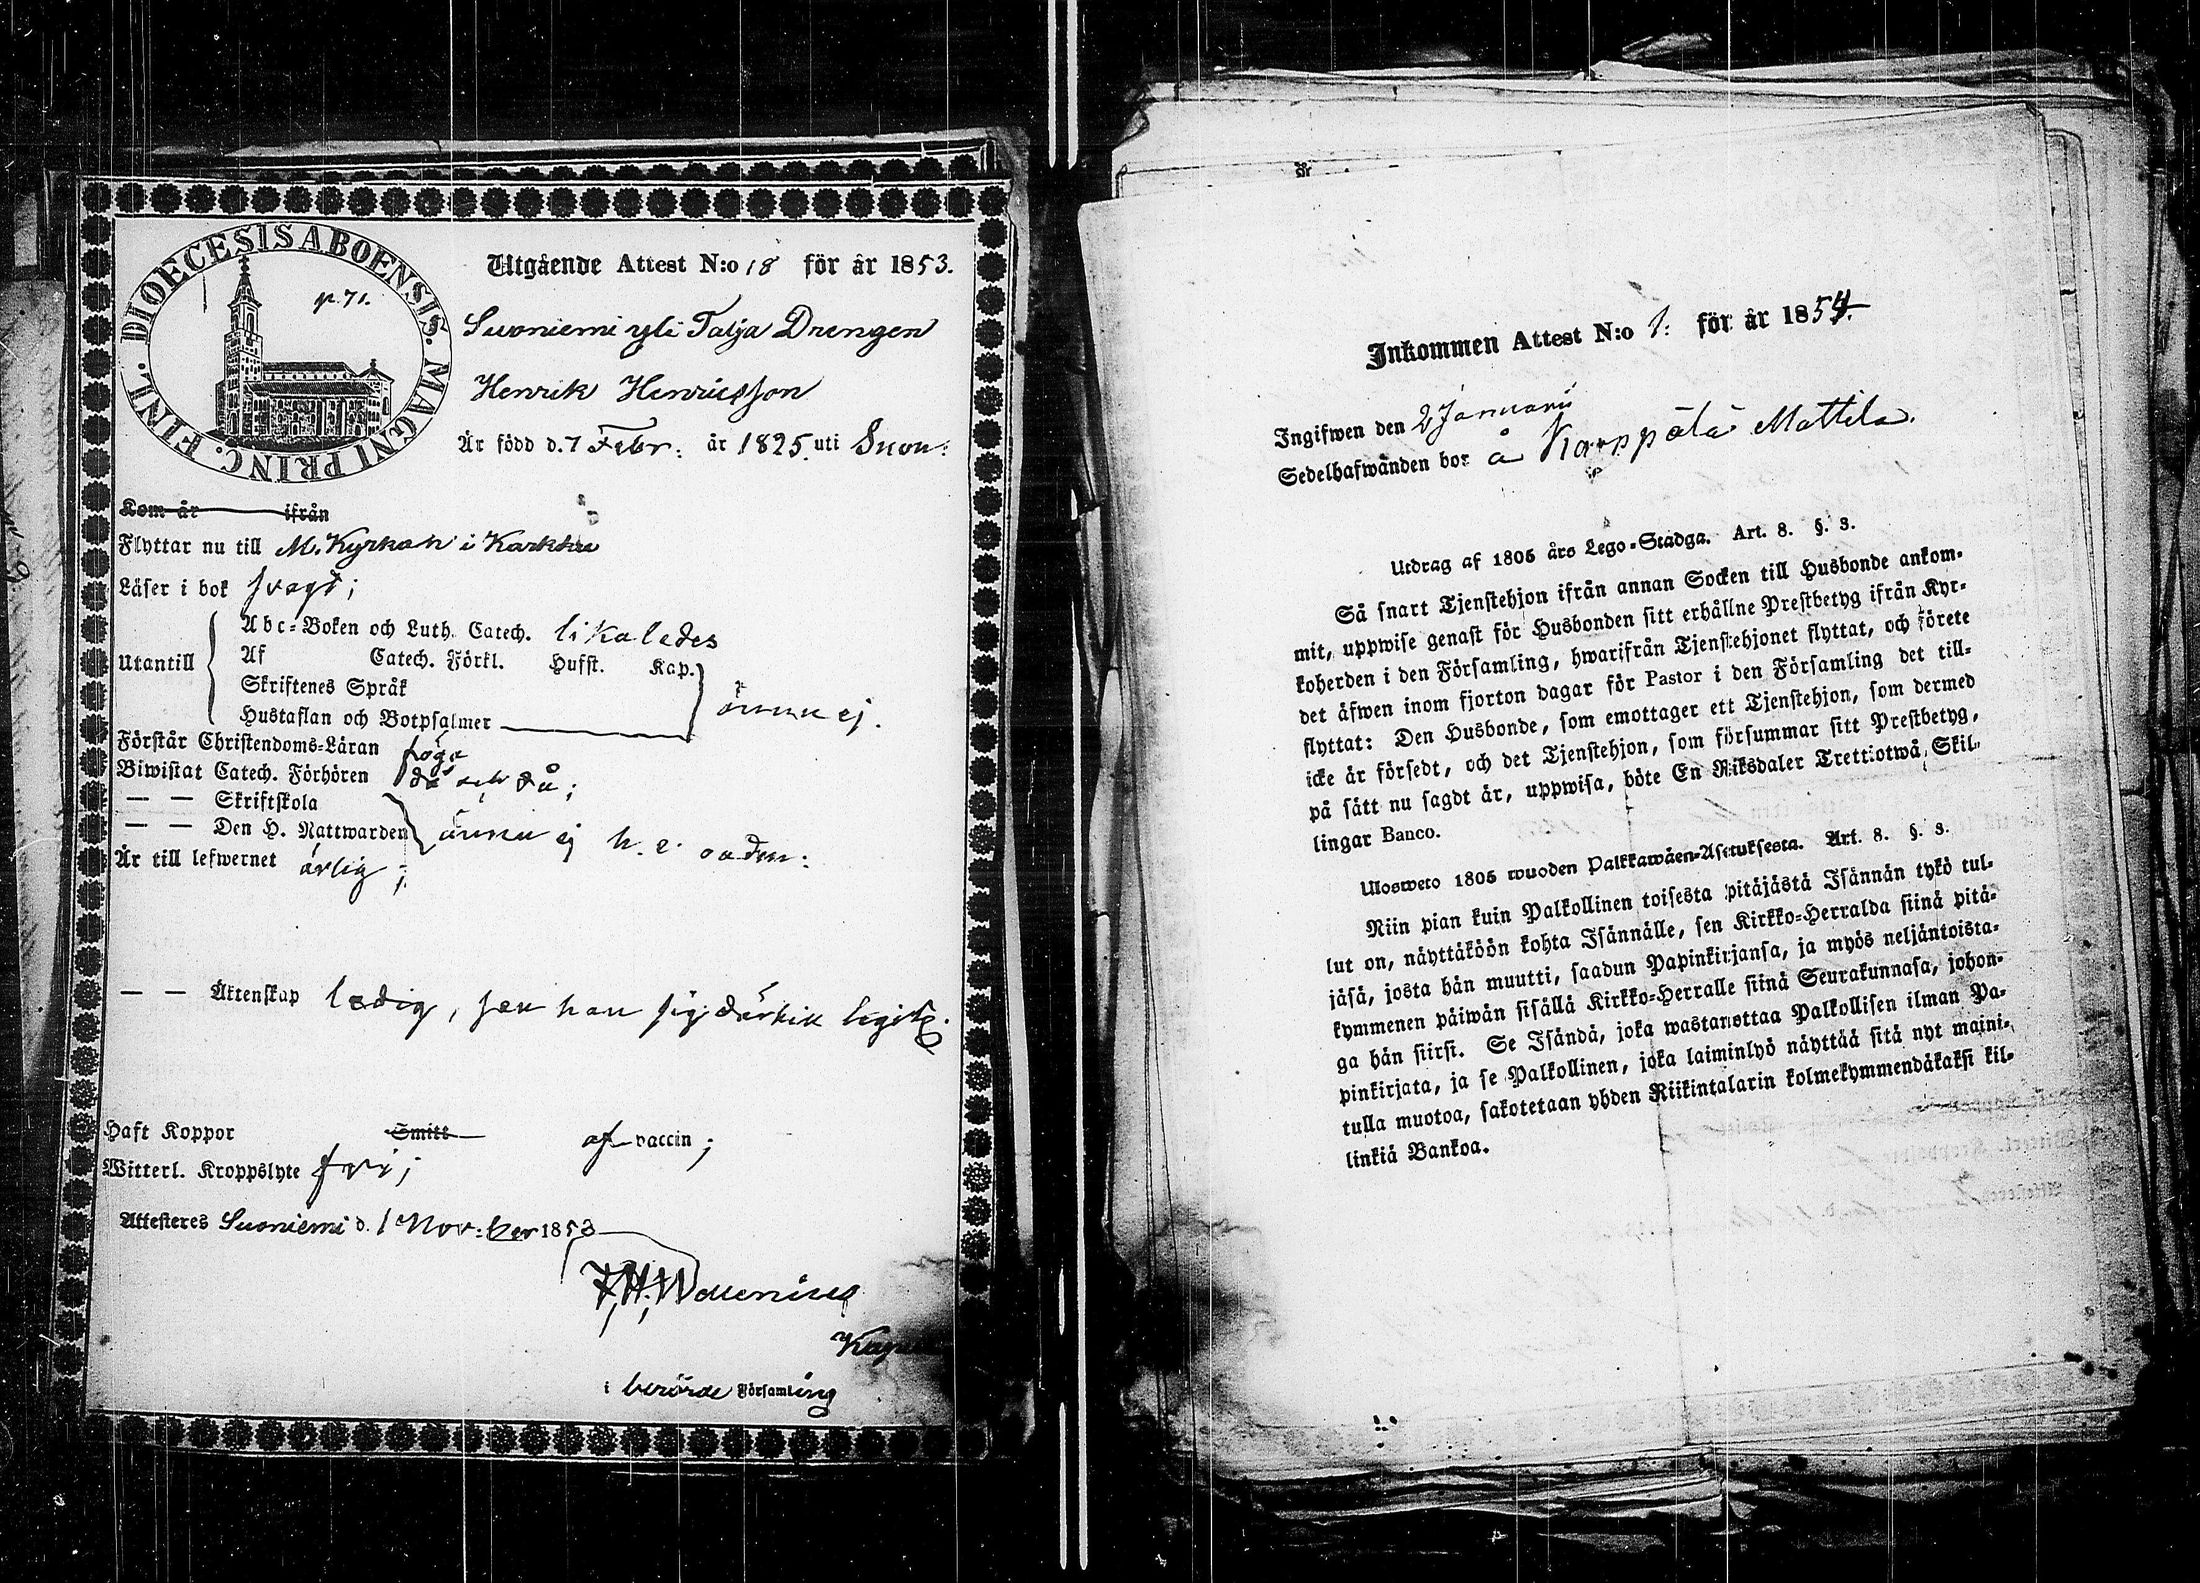 DIOECESIS ABOENSIS. MAGNI PRINC. FINL.
p. 71.
Utgående Attest N:o 18 för år 1853.
Suoniemi yli Talja Drengen
Henrik Henricsson
Är född d. 7 Febr: år 1825. uti Suon:
Kom år ifrån
Flyttar nu till M. Kyrkoh i Karkku
Läser i bok svagt;
Utantill
Abc-Boken och Luth. Catech. likaledes
Af Catech. Förkl. Hufst. Kap.
Skriftenes Språk
Hustaflan och Botpsalmer
ännu ej.
Förstår Christendoms-Läran föga
Biwistat Catech. Förhören då och då;
— — Skriftskola
— — Den H. Nattwarden
ännu ej
Är till lefwernet ärlig;
— — Äktenskap ledig,
Haft Koppor Smitt af vaccin;
Witterl. Kroppslyte fri;
Attesteres Suoniemi d. 1 Nov:ber 1853
i berörde Församling
Inkommen Attest N:o 1: för år 1854.
Ingifwen den 2 Januarii
Sedelhafwanden bor å Karppälä Mattila.
Utdrag af 1805 års Lego-Stadga. Art. 8. §. 3.
Så snart Tjenstehjon ifrån annan Socken till Husbonde ankom-
mit, uppwise genast för Husbonden sitt erhållne Prestbetyg ifrån Kyr-
koherden i den Församling, hwarifrån Tjenstehjonet flyttat, och förete
det äfwen inom fjorton dagar för Pastor i den Församling det till-
flyttat: Den Husbonde, som emottager ett Tjenstehjon, som dermed
icke är försedt, och det Tjenstehjon, som försummar sitt Prestbetyg,
på sätt nu sagdt är, uppwisa, böte En Riksdaler Trettiotwå Skil-
lingar Banco.
Ulosweto 1805 wuoden Palkkawäen-Asetuksesta. Art. 8. §. 3.
Niin pian kuin Palkollinen toisesta pitäjästä Isännän tykö tul-
lut on, näyttäköön kohta Isännälle, sen Kirkko-Herralda siinä pitä-
jäsä, josta hän muutti, saadun Papinkirjansa, ja myös neljäntoista-
kymmenen päiwän sisällä Kirkko-Herralle siinä Seurakunnasa, johon-
ga hän siirsi. Se Isändä, joka wastanottaa Palkollisen ilman Pa-
pinkirjata, ja se Palkollinen, joka laiminlyö näyttää sitä nyt maini-
tulla muotoa, sakotetaan yhden Riikintalarin kolmekymmendäkaksi kil-
linkiä Bankoa.